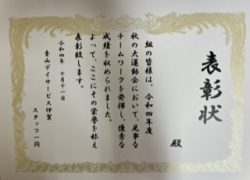 表彰状
殿
組の皆様は、令和四年度
秋の大運動会において、見事な
チームワークを発揮し、優秀な
成績を収められました。
よって、ここにその栄誉を称え
表彰致します。
令和四年 十月十一日
青山デイサービス伊賀
スタッフ一同